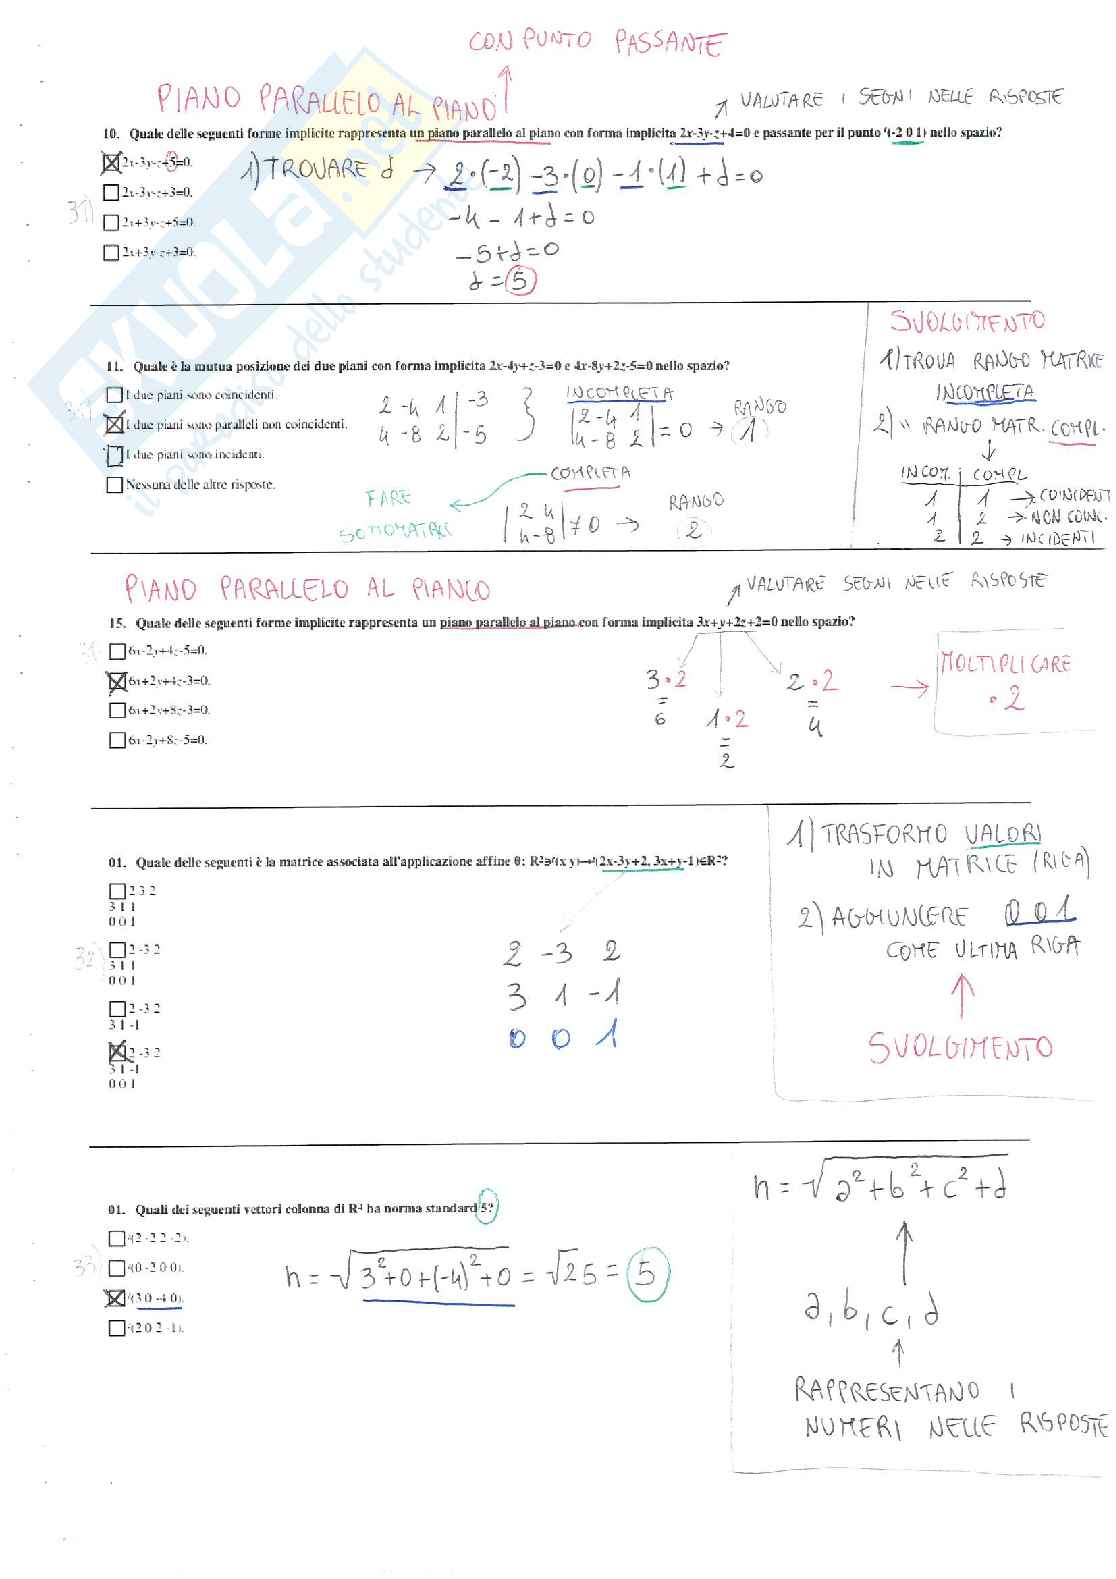 CON PUNTO PASSANTE
PIANO PARALLELO AL PIANO
VALUTARE I SEGNI NELLE RISPOSTE
10. Quale delle seguenti forme implicite rappresenta un piano parallelo al piano con forma implicita 2x-3y-z+4=0 e passante per il punto ᵗ(-2 0 1) nello spazio?
2x-3y-z+5=0.
1) TROVARE d → 2·(-2) -3·(0) -1·(1) + d = 0
2x-3y-z+3=0.
2x+3y-z+5=0.
-4 - 1 + d = 0
2x+3y-z+3=0.
-5+d=0
d = 5
SKUOLA.net
il paradiso dello studente
SVOLGIMENTO
1) TROVA RANGO MATRICE
INCOMPLETA
2) " RANGO MATR. COMPL.
INCOM. | COMPL
1 | 1 → COINCIDENT
1 | 2 → NON COINC.
2 | 2 → INCIDENTI
11. Quale è la mutua posizione dei due piani con forma implicita 2x-4y+z-3=0 e 4x-8y+2z-5=0 nello spazio?
I due piani sono coincidenti.
I due piani sono paralleli non coincidenti.
I due piani sono incidenti.
Nessuna delle altre risposte.
2 -4 1 | -3
4 -8 2 | -5
INCOMPLETA
|2 -4 1|
|4 -8 2| = 0 → 1
RANGO
COMPLETA
FARE
SOTTOMATRICI
|2 4|
|4 -8| ≠ 0 → 2
RANGO
PIANO PARALLELO AL PIANO
VALUTARE SEGNI NELLE RISPOSTE
15. Quale delle seguenti forme implicite rappresenta un piano parallelo al piano con forma implicita 3x+y+2z+2=0 nello spazio?
6x-2y+4z-5=0.
6x+2y+4z-3=0.
6x+2y+8z-3=0.
6x-2y+8z-5=0.
3·2
=
6
1·2
=
2
2·2
=
4
→ MOLTIPLICARE
·2
01. Quale delle seguenti è la matrice associata all'applicazione affine θ: R²∋ᵗ(x y)↦ᵗ(2x-3y+2, 3x+y-1)∈R²?
2 3 2
3 1 1
0 0 1
2 -3 2
3 1 1
0 0 1
2 -3 2
3 1 -1
2 -3 2
3 1 -1
0 0 1
2 -3 2
3 1 -1
0 0 1
1) TRASFORMO VALORI
IN MATRICE (RIGA)
2) AGGIUNGERE 0 0 1
COME ULTIMA RIGA
SVOLGIMENTO
01. Quali dei seguenti vettori colonna di R⁴ ha norma standard 5?
ᵗ(2 -2 2 -2).
ᵗ(0 -2 0 0).
ᵗ(3 0 -4 0).
ᵗ(2 0 2 -1).
n = √3²+0+(-4)²+0 = √25 = 5
n = √a²+b²+c²+d
a, b, c, d
RAPPRESENTANO I
NUMERI NELLE RISPOSTE